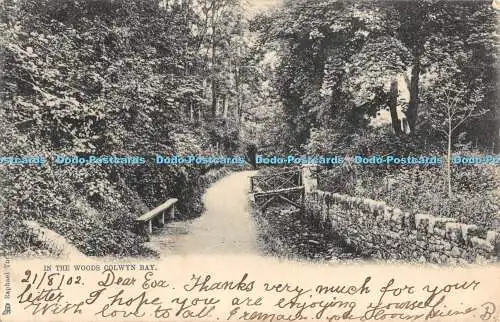 Dodo-Postcards Dodo-Postcards Dodo-Postcards Dodo-Postcards Dodo-Postcards
IN THE WOODS COLWYN BAY.
Raphael
21/8/02. Dear Eva. Thanks very much for your
letter. I hope you are enjoying yourself.
With love to all. I remain
B.